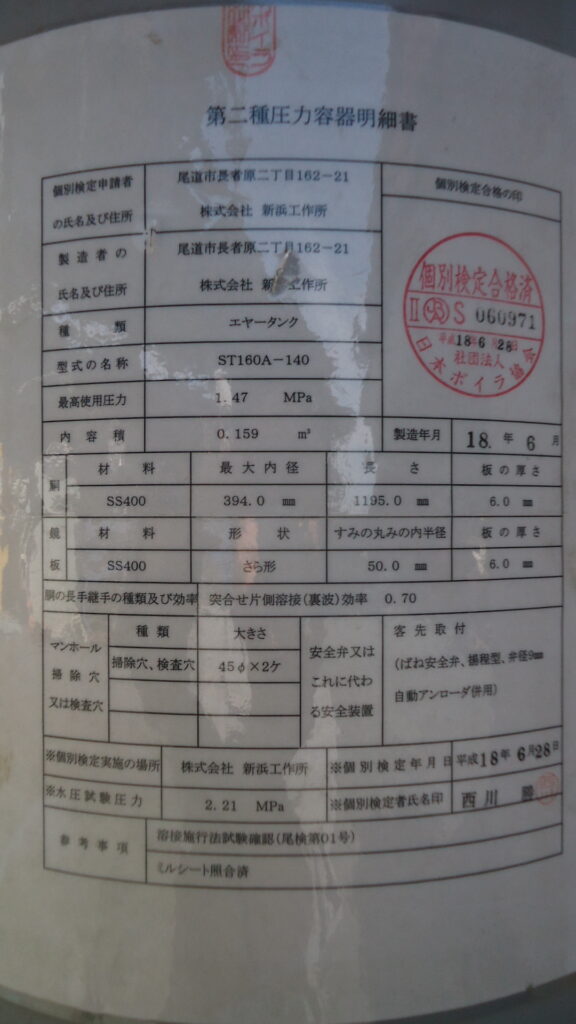 第二種圧力容器明細書
個別検定申請者
の氏名及び住所
尾道市長者原二丁目162−21
株式会社 新浜工作所
個別検定合格の印
製造者の
氏名及び住所
尾道市長者原二丁目162−21
株式会社 新浜工作所
個別検定合格済
II S 060971
平成18年6月28日
社団法人
日本ボイラ協会
種類 エヤータンク
型式の名称 ST160A−140
最高使用圧力 1.47 MPa
内容積 0.159 m³ 製造年月 18.年 6 月
胴 材料 最大内径 長さ 板の厚さ
SS400 394.0 ㎜ 1195.0 ㎜ 6.0 ㎜
鏡板 材料 形状 すみの丸みの内半径 板の厚さ
SS400 さら形 50.0 ㎜ 6.0 ㎜
胴の長手継手の種類及び効率 突合せ片側溶接(裏波)効率 0.70
マンホール
掃除穴
又は検査穴
種類 大きさ
掃除穴、検査穴 45φ×2ケ
安全弁又は
これに代わ
る安全装置
客先取付
(ばね安全弁、揚程型、弁径9㎜
自動アンローダ併用)
※個別検定実施の場所 株式会社 新浜工作所 ※個別検定年月日 平成18年6月28日
※水圧試験圧力 2.21 MPa ※個別検定者氏名印 西川
参考事項
溶接施行法試験確認(尾検第01号)
ミルシート照合済